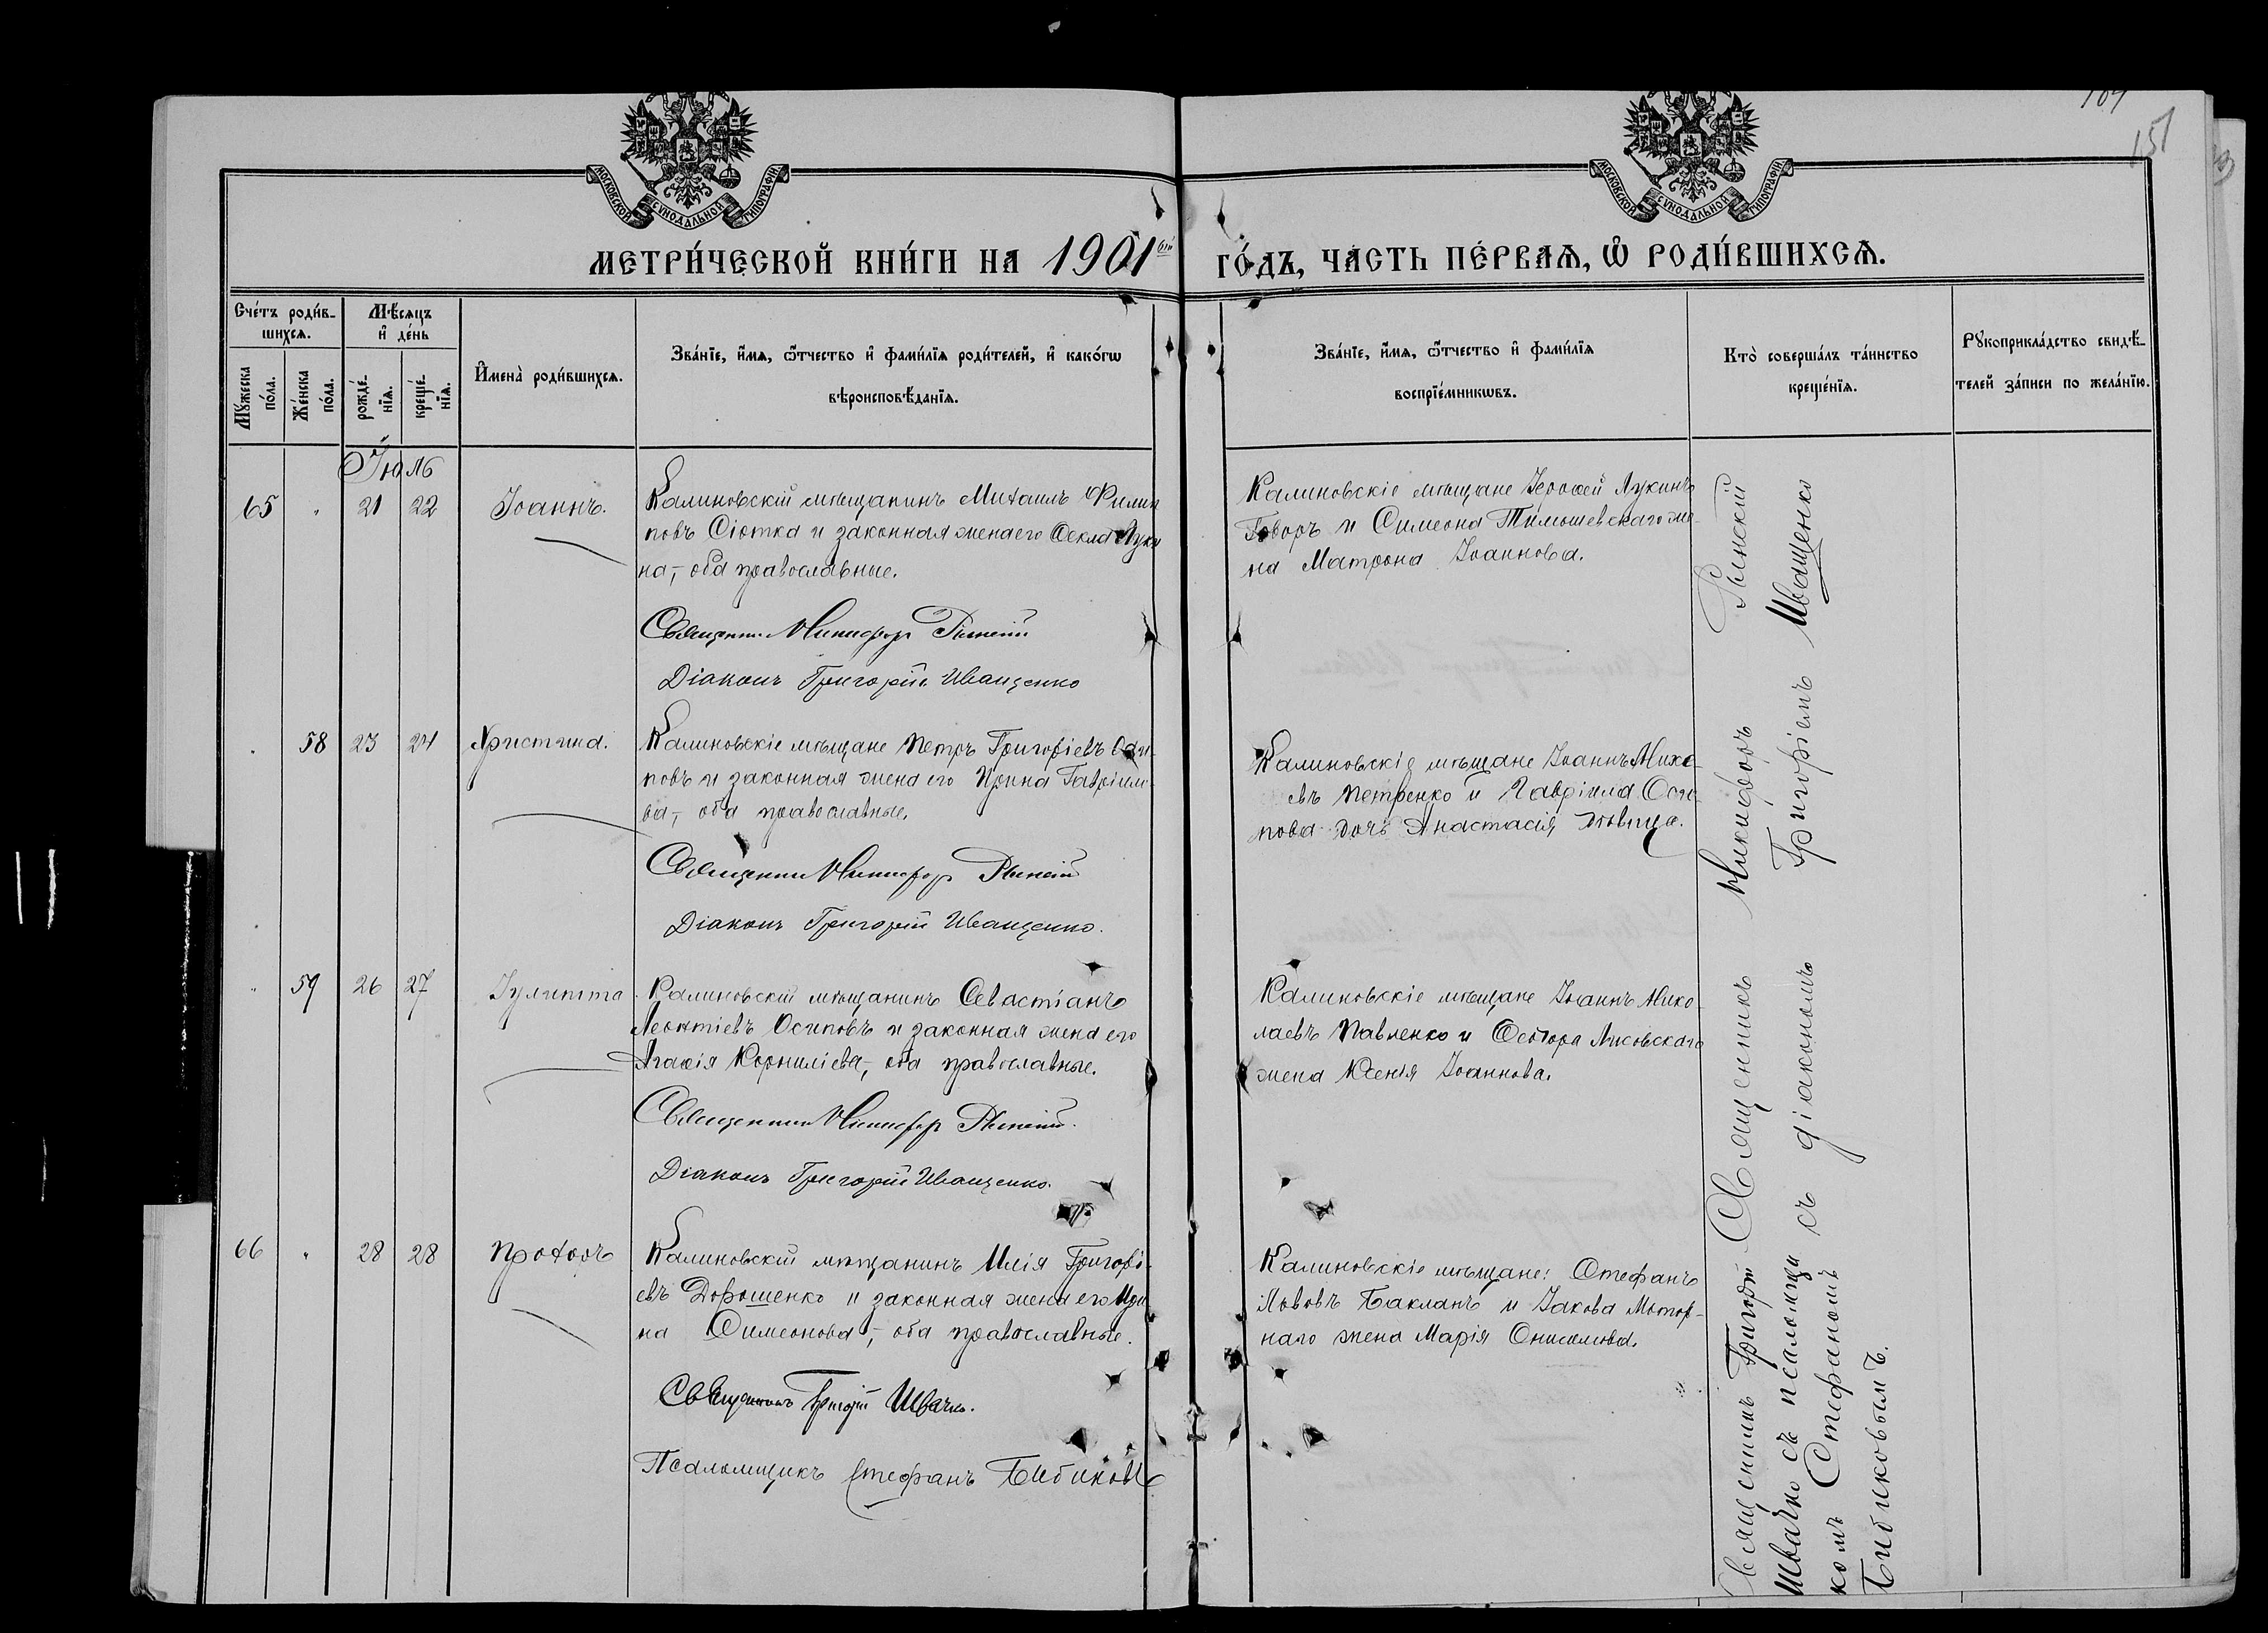 МОСКОВСКОЙ СѴНОДАЛЬНОЙ ТИПОГРАФІИ
МОСКОВСКОЙ СѴНОДАЛЬНОЙ ТИПОГРАФІИ
151
МЕТРИ́ЧЕСКОЙ КНИ́ГИ НА 1901ый ГО́ДЪ, ЧА́СТЬ ПЕ́РВАѦ, Ѡ҆ РОДИ́ВШИХСѦ.
Сче́тъ роди́в-
шихсѧ.
Мѣ́сяцъ
и҆ де́нь
Му́жеска
по́ла.
Же́нска
по́ла.
рожде́-
нїѧ.
креще́-
нїѧ.
И҆мена̀ роди́вшихсѧ.
Зва́нїе, и҆́мѧ, ѻ҆́тчество и҆ фами́лїѧ роди́телей, и҆ како́гѡ
вѣроисповѣ́данїѧ.
Зва́нїе, и҆́мѧ, ѻ҆́тчество и҆ фами́лїѧ
воспрїе́мникѡвъ.
Кто̀ соверша́лъ та́инство
креще́нїѧ.
Рꙋкоприкла́дство свидѣ́-
телей за́писи по жела́нїю.
Іюль
65 " 21 22 Іоаннъ.
Калиновскій мѣщанинъ Михаилъ Филип
повъ Сіотка и законная жена его Ѳекла Луки
на,- оба православные.
Священн. Никифоръ Рынскій
Діаконъ Григорій Иващенко
Калиновскіе мѣщане Іероѳей Лукинъ
Говоръ и Симеона Тимошевскаго же-
на Матрона Іоаннова.
" 58 23 24 Христина.
Калиновскіе мѣщане Петръ Григоріевъ Оси-
повъ и законная жена его Ирина Гавріило-
ва,- оба православные.
Священник Никифоръ Рынскій
Діаконъ Григорій Иващенко.
Калиновскіе мѣщане Іоаннъ Михе-
евъ Петренко и Гавріила Оси-
пова дочь Анастасія дѣвица.
" 59 26 27 Іулитта
Калиновскій мѣщанинъ Севастіанъ
Леонтіевъ Осиповъ и законная жена его
Агаѳія Корниліева,- оба православные.
Священник Никифоръ Рынскій.
Діаконъ Григорій Иващенко.
Калиновскіе мѣщане Іоаннъ Нико-
лаевъ Павленко и Ѳеодора Лисовскаго
жена Ксенія Іоаннова.
66 " 28 28 Прохоръ
Калиновскій мѣщанинъ Илія Григорі-
евъ Дорошенко и законная жена его Ири
на Симеонова,- оба православные.
Священникъ Григорій Швачко.
Псаломщикъ Стефанъ Бибиковъ
Калиновскіе мѣщане: Стефанъ
Львовъ Бакланъ и Іакова Мотор-
наго жена Марія Онисимова.
Священникъ Никифоръ Рынскій
съ діакономъ Григоріемъ Иващенко
Священникъ Григорій
Швачко съ псаломщи
комъ Стефаномъ
Бибиковымъ.